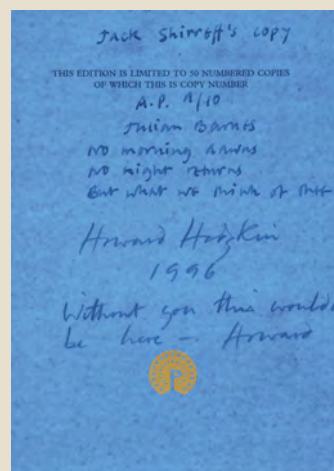 Jack Shirreff's copy
THIS EDITION IS LIMITED TO 50 NUMBERED COPIES
OF WHICH THIS IS COPY NUMBER
A.P. /10
Julian Barnes
No morning dawns
no night returns
But what we think of thee
Howard Hodgkin
1996
Without you this would
be here – Howard
P